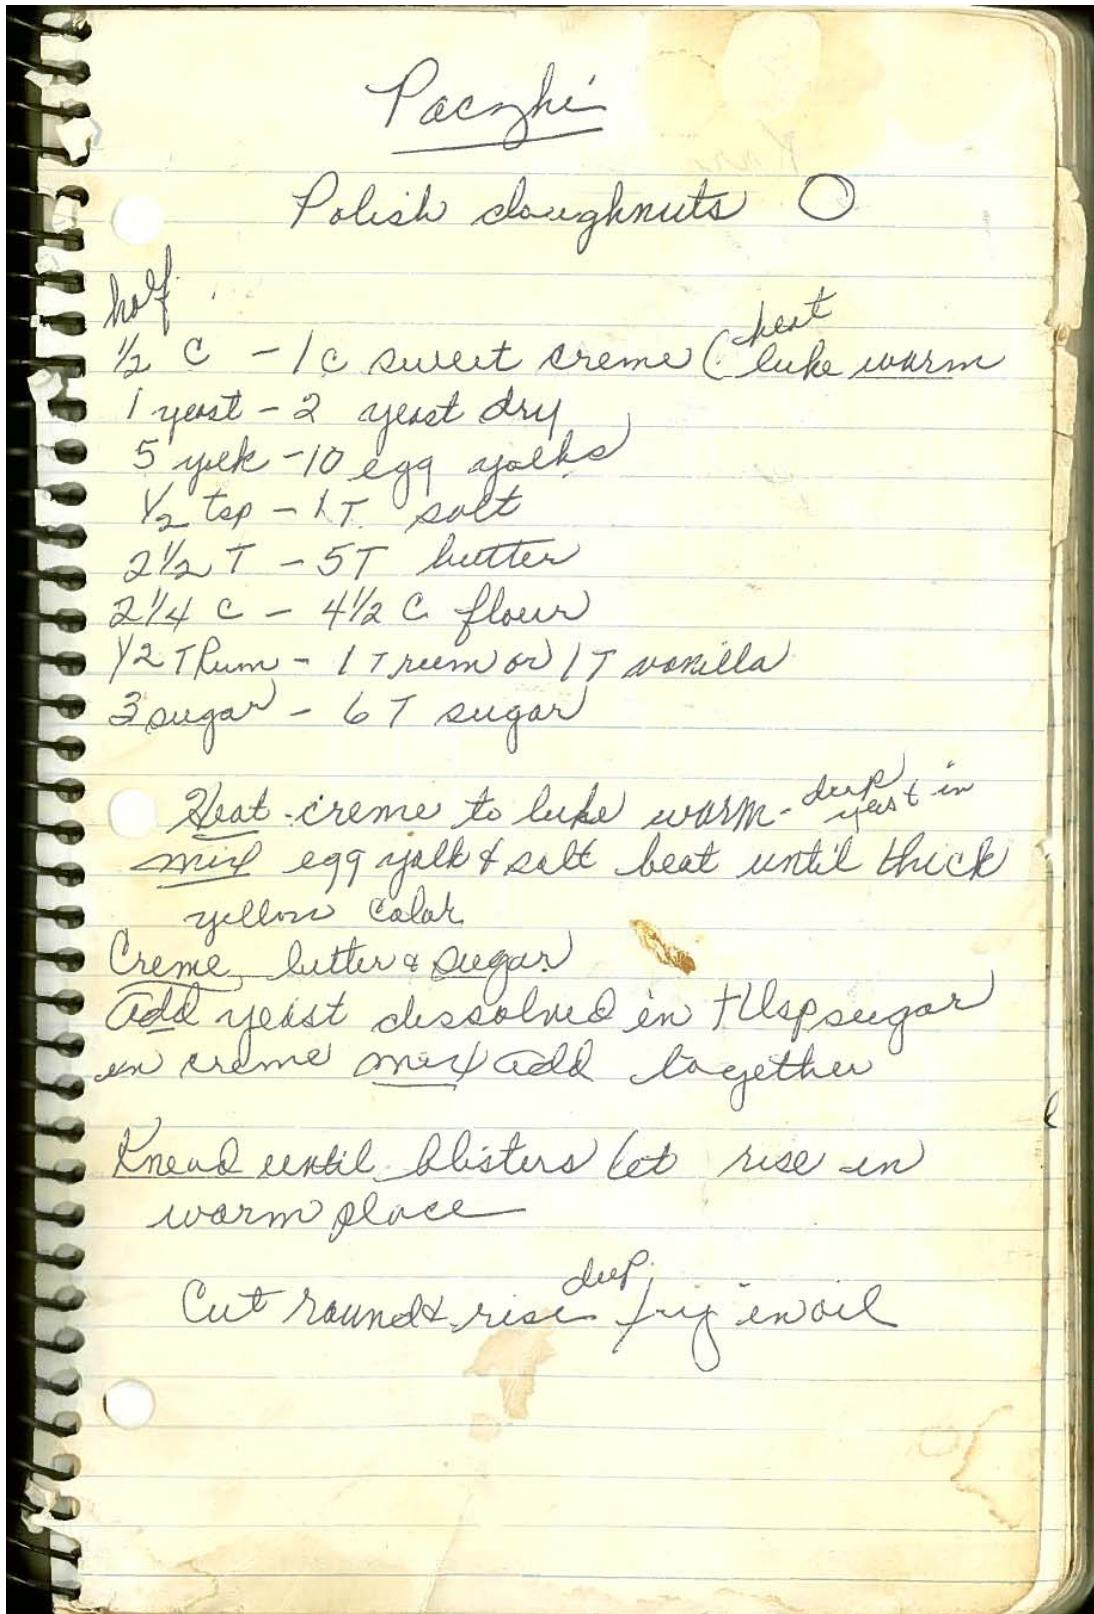 Paczki
Polish doughnuts
half
½ C - 1 C sweet creme (heat luke warm
1 yeast - 2 yeast dry
5 yolk - 10 egg yolks
½ tsp - 1 T salt
2½ T - 5 T butter
2¼ C - 4½ C flour
½ T Rum - 1 T rum or 1 T vanilla
3 sugar - 6 T sugar
Heat creme to luke warm - yeast in
mix egg yolk & salt beat until thick
yellow color
Creme butter & sugar
add yeast dissolved in sugar
in creme mix add together
Knead until blisters let rise in
warm place
Cut round & rise deep fry in oil